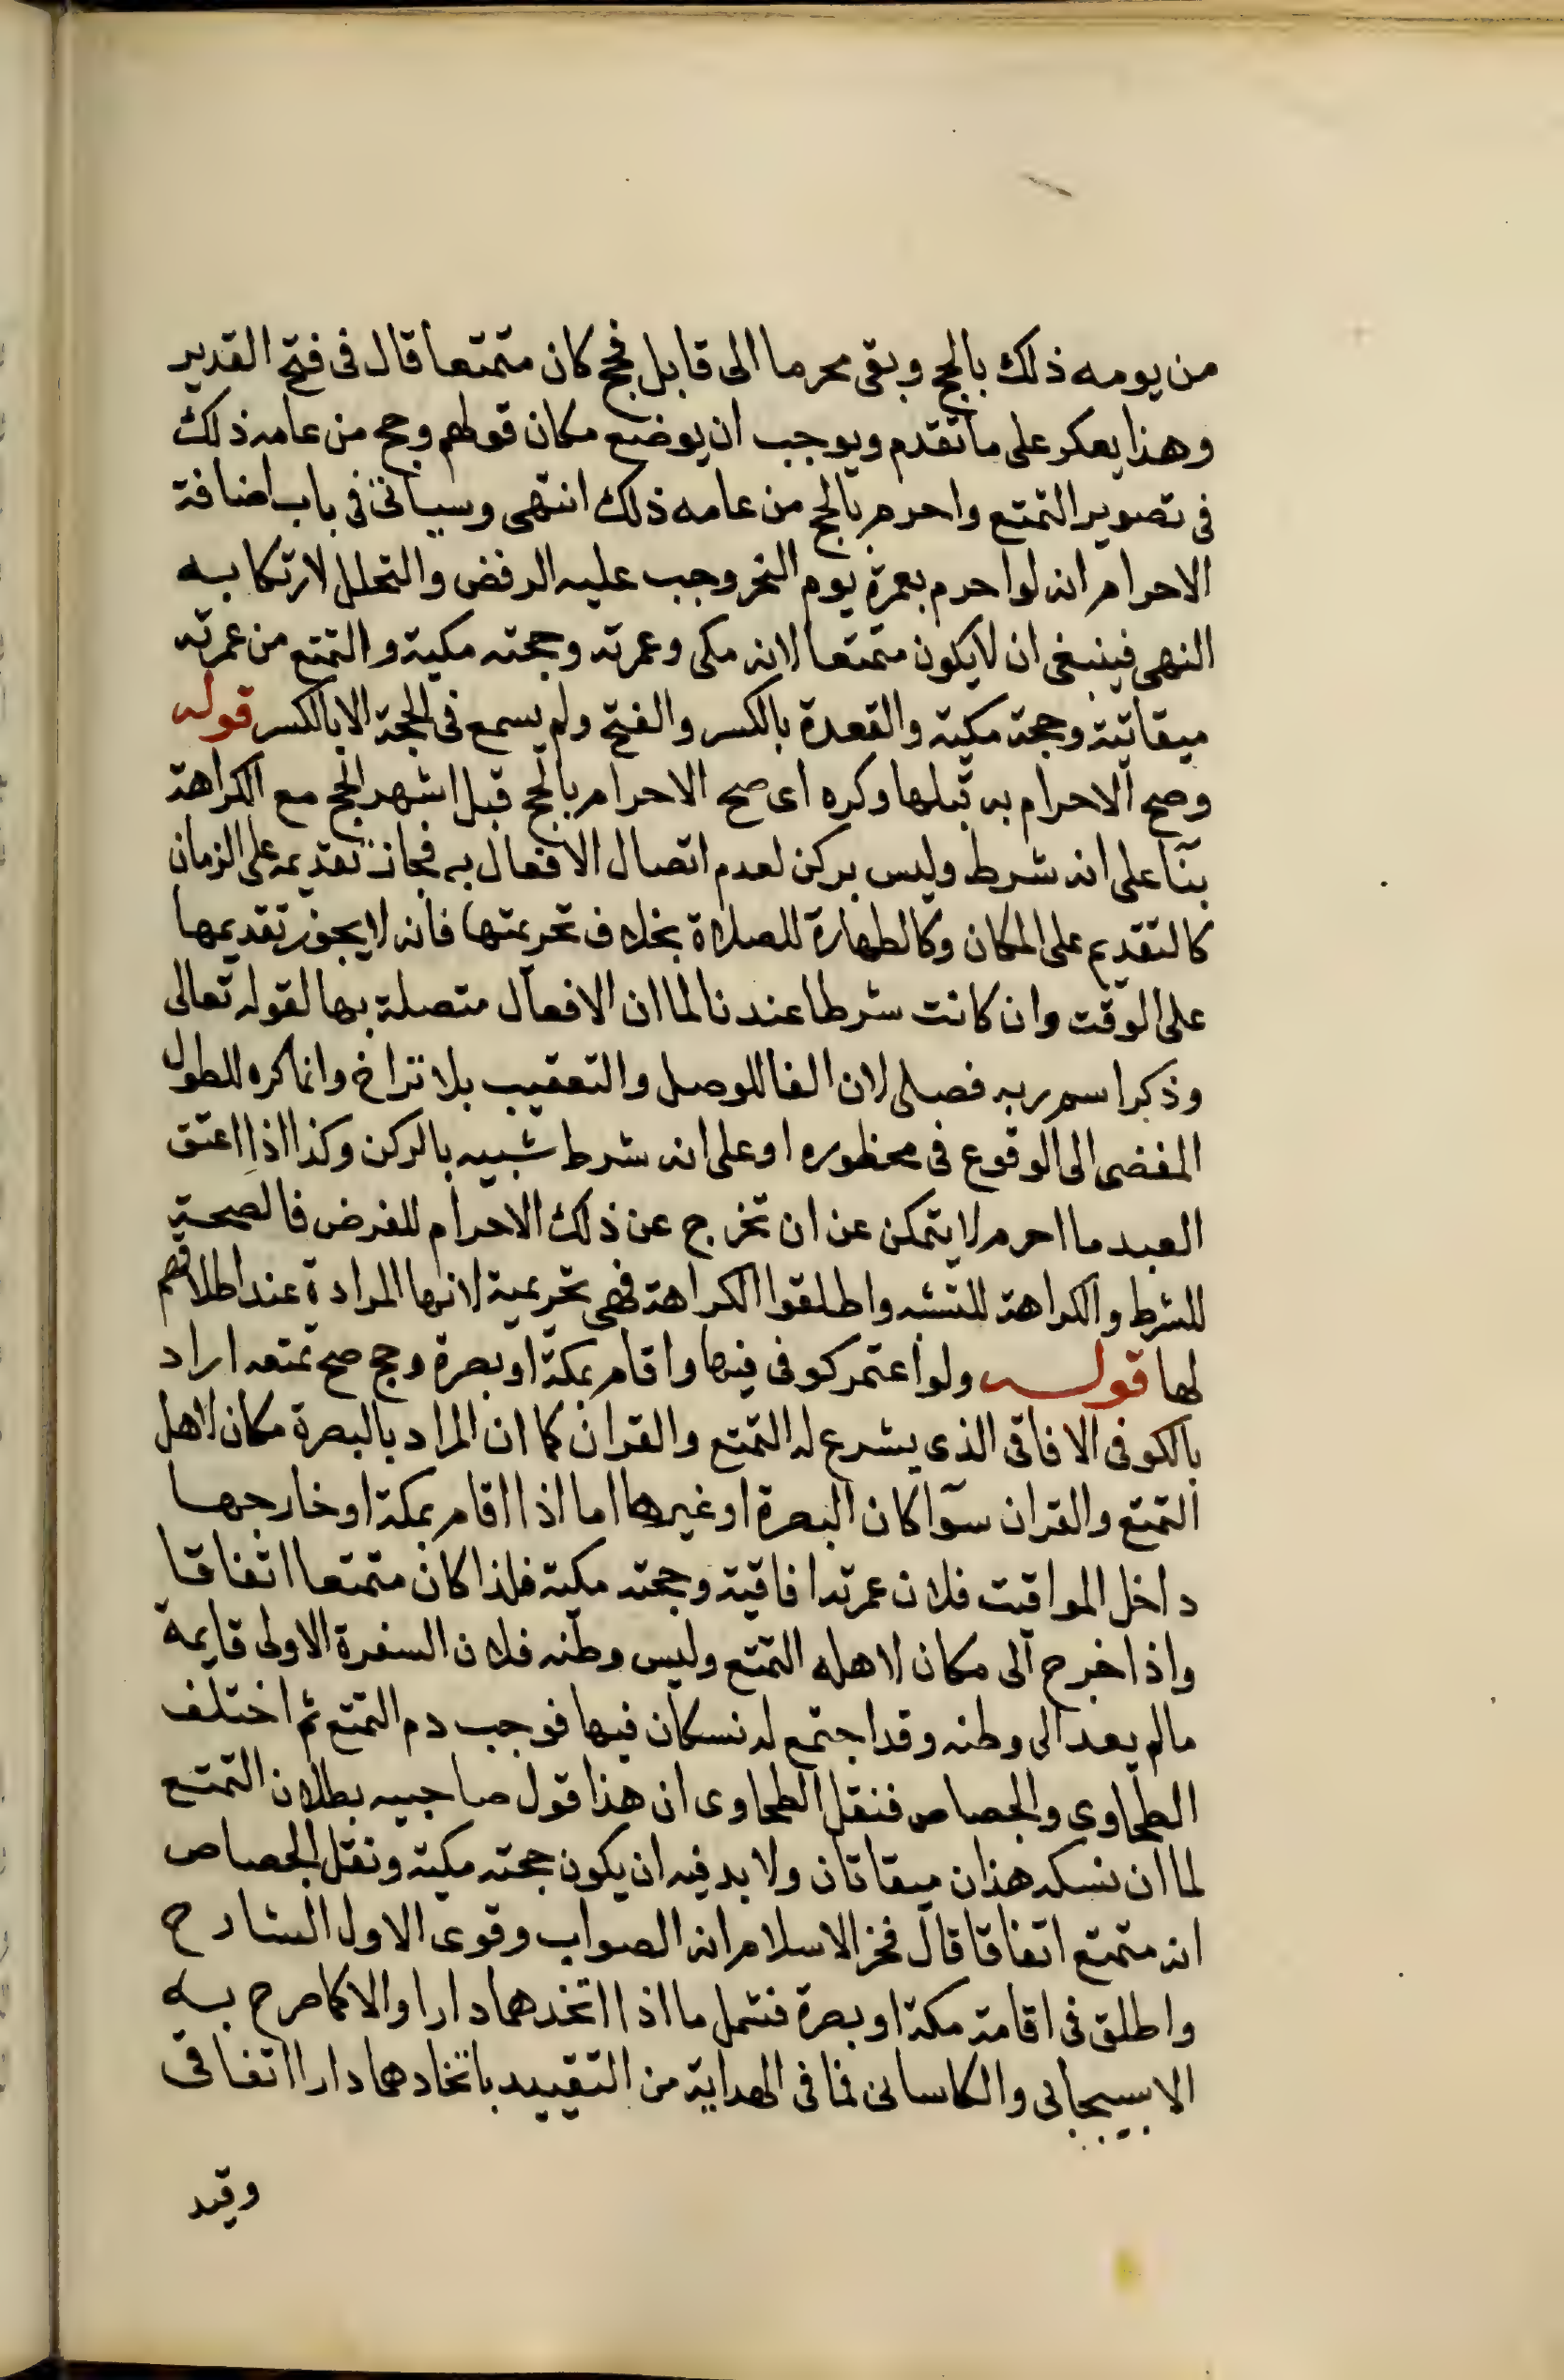 من يومه ذلك بالحج وبقى محرما الى قابل فحج كان متمتعا قال فى فتح القدير
وهذا يعكر على ما تقدم ويوجب ان يوضع مكان قولهم وحج من عامه ذلك
فى تصوير التمتع واحرم بالحج من عامه ذلك انتهى وسياتى فى باب اضافة
الاحرام انه لو احرم بعمرة يوم النحر وجب عليه الرفض والتحلل لارتكابه
النهى فينبغى ان لا يكون متمتعا لانه مكى وعمرته وحجته مكية والتمتع من عمرته
ميقاتية وحجته مكية والقعدة بالكسر والفتح ولم يسمع فى الحجة الا بالكسر قوله
وصح الاحرام به قبلها وكره اى صح الاحرام بالحج قبل اشهر الحج مع الكراهة
بنآ على انه شرط وليس بركن لعدم اتصال الافعال به فجاز تقديمه على الزمان
كالتقديم على المكان وكالطهارة للصلاة بخلاف تحريمتها فانه لا يجوز تقديمها
على الوقت وان كانت شرطا عندنا لما ان الافعال متصلة بها لقوله تعالى
وذكر اسم ربه فصلى لان الفا للوصل والتعقيب بلا تراخ وانما كره للطول
المفضى الى الوقوع فى محظوره او على انه شرط شبيه بالركن وكذا اذا اعتق
العبد ما احرم لا يتمكن عن ان تخرج عن ذلك الاحرام للفرض فالصحة
للشرط والكراهة للشبه واطلقوا الكراهة فهى تحريمية لانها المرادة عند اطلاقهم
لها قوله ولو اعتمر كوفى فيها واقام بمكة او بصرة وحج صح تمتعه اراد
بالكوفى الافاقى الذى يشرع له التمتع والقران كما ان المراد بالبصرة مكان لاهل
التمتع والقران سوآ كان البصرة او غيرها اما اذا اقام بمكة او خارجها
داخل المواقيت فلان عمرته افاقية وحجته مكية فلذا كان متمتعا اتفاقا
واذا خرج الى مكان لاهله التمتع وليس وطنه فلان السفرة الاولى قايمة
مالم يعد الى وطنه وقد اجتمع له نسكان فيها فوجب دم التمتع ثم اختلف
الطحاوى والجصاص فنقل الطحاوى ان هذا قول صاحبيه بطلان التمتع
لما ان نسكه هذان ميقاتان ولا بد فيه ان يكون حجته مكية ونقل الجصاص
انه متمتع اتفاقا قال فخر الاسلام انه الصواب وقوى الاول الشارح
واطلق فى اقامة مكة او بصرة فشمل ما اذا اتخدهما دارا والا كما صرح به
الاسبيجابى والكاسانى فما فى الهداية من التقييد باتخادهما دارا اتفاقى
وقيد